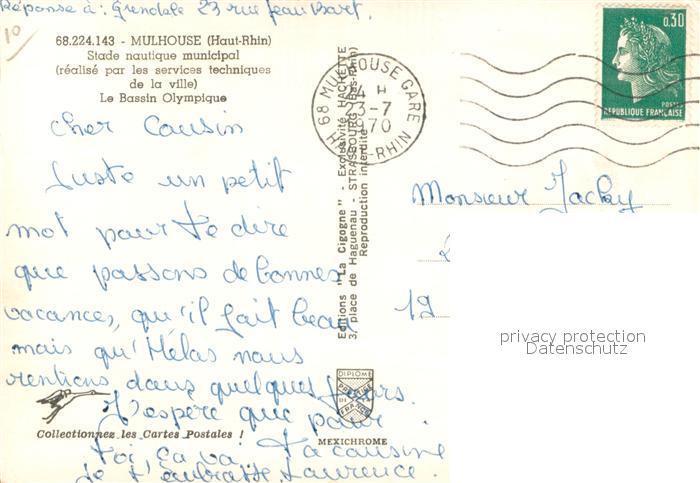 Réponse à : Grendele 23 rue Jean Bart.
10
68.224.143 - MULHOUSE (Haut-Rhin)
Stade nautique municipal
(réalisé par les services techniques
de la ville)
Le Bassin Olympique
cher Cousin
Juste un petit
mot pour te dire
que passons de bonnes
vacances, qu'il fait beau
mais qu'Hélas nous
rentions dans quelques jours.
J'espère que pour
toi ça va. Ta cousine
je t'embrasse Laurence.
Collectionnez les Cartes Postales !
Editions "La Cigogne" - Exclusivité HACHETTE
3, place de Haguenau - STRASBOURG (Bas-Rhin)
Reproduction interdite
DIPLOME
PRESTIGE
DE LA
FRANCE
MEXICHROME
68 MULHOUSE GARE
24 H
23-7
1970
HT RHIN
0,30
POSTES
REPUBLIQUE FRANÇAISE
Monsieur Jacky
19
privacy protection
Datenschutz